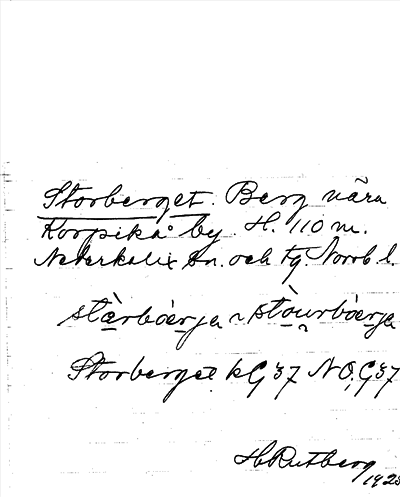 Storberget. Berg nära
Korpikå by. H. 110 m.
Nederkalix sn. och tg. Norrb l.
stɑ̀rbóerja ~ stòurbóerja
Storberget k G 37 NO, G 37
H. Rutberg
1928